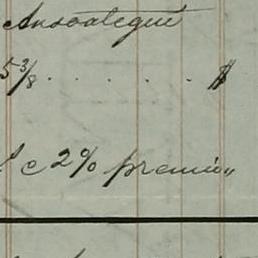 Ansoategui
5 3/8 . . . . . $
c 2% premium